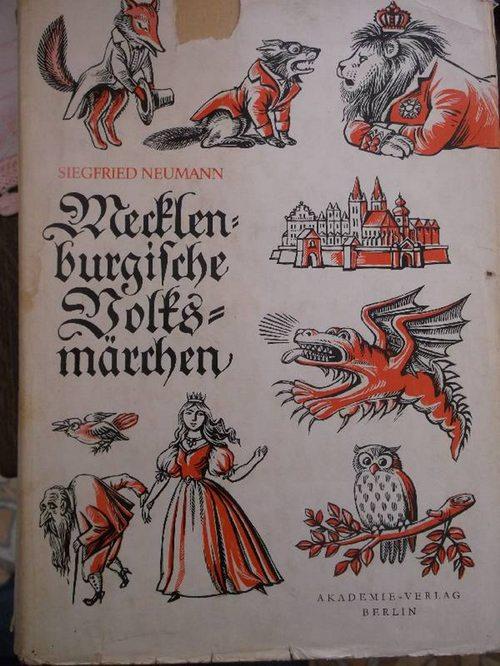 SIEGFRIED NEUMANN
Mecklen=
burgische
Volks=
märchen
AKADEMIE-VERLAG
BERLIN